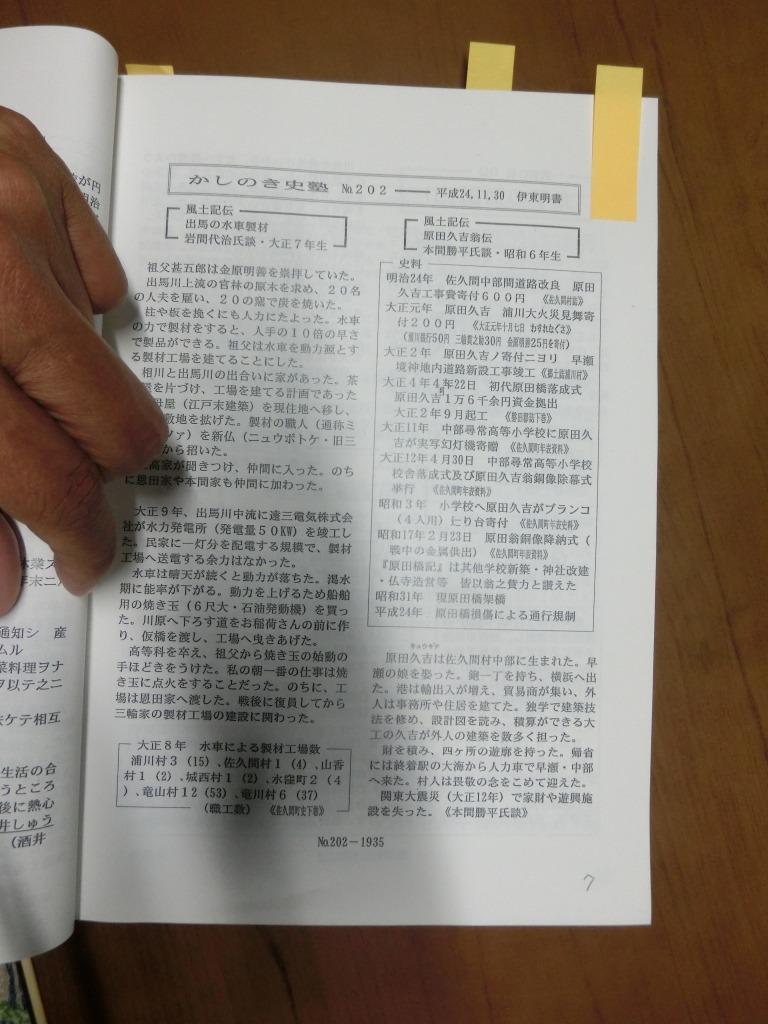 が円
明治
かしのき史塾 №202 ―― 平成24,11,30 伊東明書
風土記伝
出馬の水車製材
岩間代治氏談・大正7年生
祖父甚五郎は金原明善を崇拝していた。
出馬川上流の官林の原木を求め、20名
の人夫を雇い、20の窯で炭を焼いた。
柱や板を挽くにも人力にたよった。水車
の力で製材をすると、人手の10倍の早さ
で製品ができる。祖父は水車を動力源とす
る製材工場を建てることにした。
相川と出馬川の出合いに家があった。茶
を片づけ、工場を建てる計画であった
母屋(江戸末建築)を現住地へ移し、
敷地を拡げた。製材の職人(通称ミ
ツァ)を新仏(ニュウボトケ・旧三
から招いた。
高家が聞きつけ、仲間に入った。のち
に恩田家や本間家も仲間に加わった。
大正9年、出馬川中流に遠三電気株式会
社が水力発電所(発電量50KW)を竣工し
た。民家に一灯分を配電する規模で、製材
工場へ送電する余力はなかった。
水車は晴天が続くと動力が落ちた。渇水
期に能率が下がる。動力を上げるため船舶
用の焼き玉(6尺大・石油発動機)を買っ
た。川原へ下ろす道をお稲荷さんの前に作
り、仮橋を渡し、工場へ曳きあげた。
高等科を卒え、祖父から焼き玉の始動の
手ほどきをうけた。私の朝一番の仕事は焼
き玉に点火をすることだった。のちに、工
場は恩田家へ渡した。戦後に復員してから
三輪家の製材工場の建設に関わった。
大正8年 水車による製材工場数
浦川村3(15)、佐久間村1(4)、山香
村1(2)、城西村1(2)、水窪町2(4
)、竜山村12(53)、竜川村6(37)
(職工数) 《佐久間町史下巻》
風土記伝
原田久吉翁伝
本間勝平氏談・昭和6年生
史料
明治24年 佐久間中部間道路改良 原田
久吉工事費寄付600円 《佐久間村誌》
大正元年 原田久吉 浦川大火災見舞寄
付200円 《大正元年十月七日 わすれなぐさ》
大正2年 原田久吉ノ寄付ニヨリ 早瀬
境神地内道路新設工事竣工
大正4年4月22日 初代原田橋落成式
原田久吉1万6千余円資金拠出
大正2年9月起工
大正11年 中部尋常高等小学校に原田久
吉が実写幻灯機寄贈 《佐久間町年表資料》
大正12年4月30日 中部尋常高等小学校
校舎落成式及び原田久吉翁銅像除幕式
挙行 《佐久間町年表資料》
昭和3年 小学校へ原田久吉がブランコ
(4人用)辷り台寄付 《佐久間町年表資料》
昭和17年2月23日 原田翁銅像降納式(
戦中の金属供出) 《佐久間町年表資料》
『原田橋記』は其他学校新築・神社改建
・仏寺造営等 皆以翁之費力と讃えた
昭和31年 現原田橋架橋
平成24年 原田橋損傷による通行規制
原田久吉は佐久間村中部に生まれた。早
瀬の娘を娶った。鉋一丁を持ち、横浜へ出
た。港は輸出入が増え、貿易商が集い、外
人は事務所や住居を建てた。独学で建築技
法を修め、設計図を読み、積算ができる大
工の久吉が外人の建築を数多く担った。
財を積み、四ヶ所の遊廓を持った。帰省
には終着駅の大海から人力車で早瀬・中部
へ来た。村人は畏敬の念をこめて迎えた。
関東大震災(大正12年)で家財や遊興施
設を失った。《本間勝平氏談》
№202－1935
7
林業ス
年末ニ
通知シ 産
ムル
菜料理ヲナ
ヲ以テ之ニ
ケテ相互
生活の合
うところ
後に熱心
井しゅう
(酒井